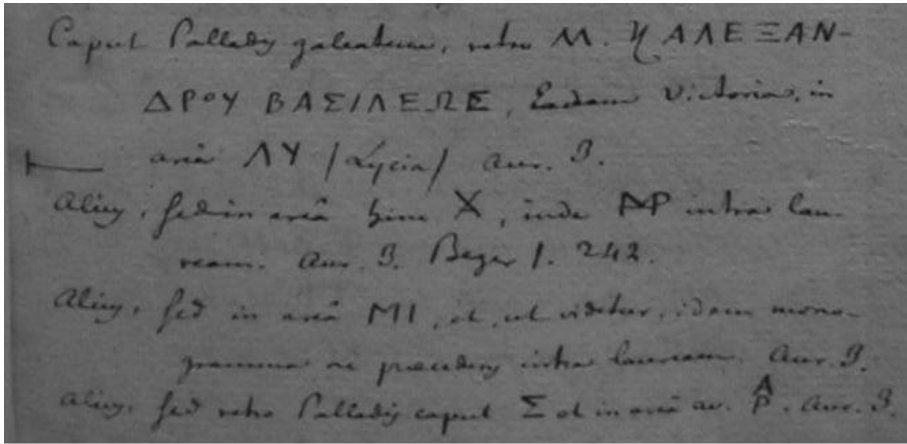 Caput Palladis galeatum, retro M. ΑΛΕΞΑΝ-
ΔΡΟΥ ΒΑΣΙΛΕΩΣ, Eadem Victoria, in
areâ ΛΥ /Lycia/ Aur. 3.
Alius, sed in areâ hinc X, inde ΜΡ intra lau-
ream. Aur. 3. Beger I. 242.
Alius, sed in areâ MI, et, ut videtur, idem mono-
gramma ac praecedens intra lauream. Aur. 3.
Alius, sed retro Palladis caput Σ et in areâ av. Aur. 3.